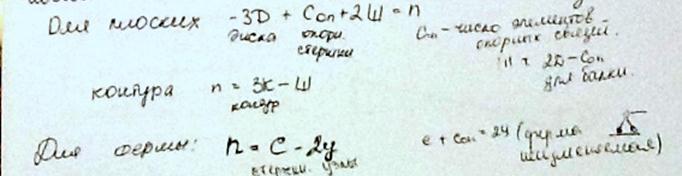 Для плоских -3D + Cоп + 2Ш = n
диска опорн. стержни
Cоп - число элементов опорных связей.
2D - Cоп
для балки.
контура n = 3K - Ш
контур
Для фермы: n = C - 2y
стержни узлы
c + Cоп = 2y (ферма
неизменяемая)